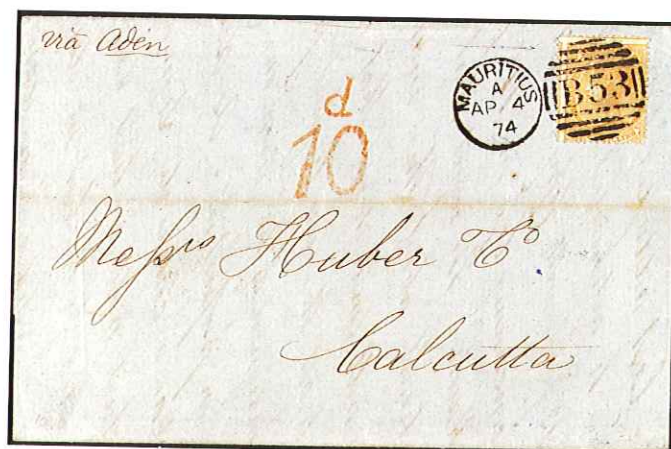 via Aden
MAURITIUS
A
AP 4
74
B53
d
10
Messrs Huber & Co
Calcutta